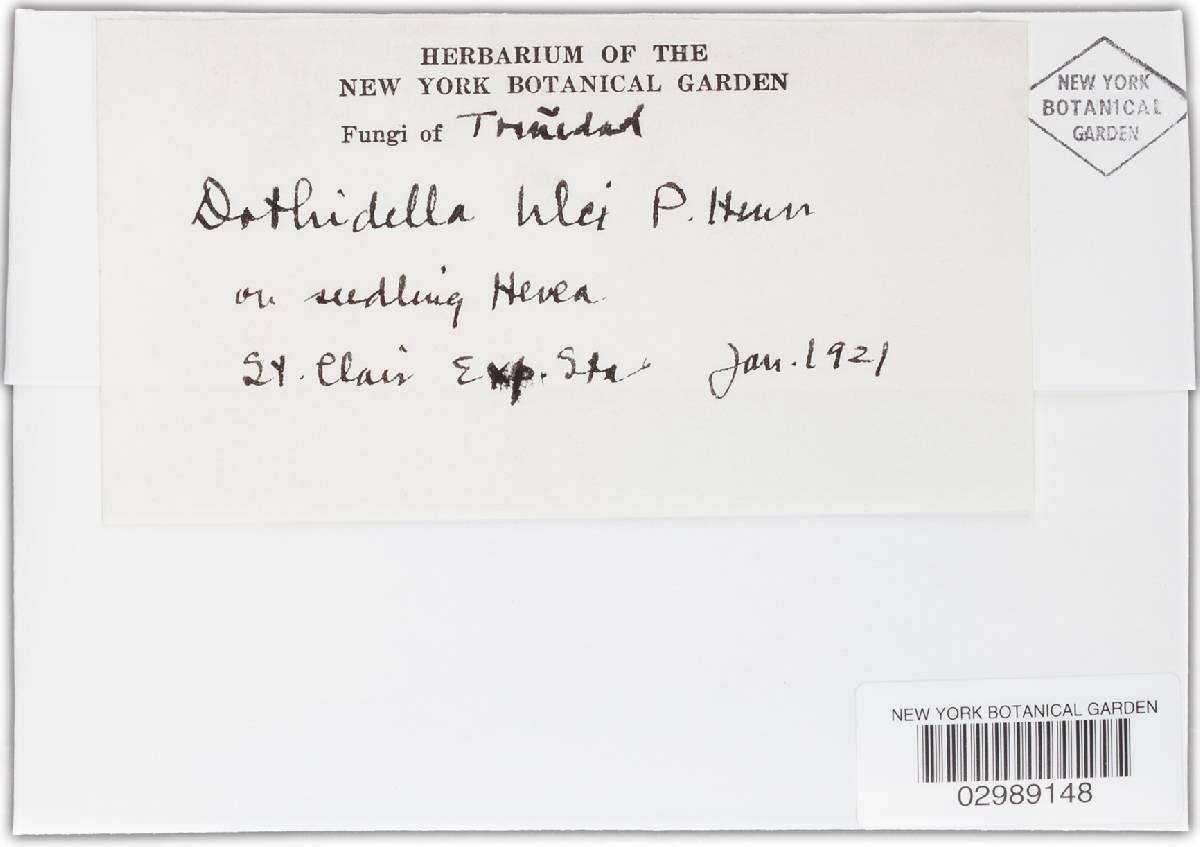 HERBARIUM OF THE
NEW YORK BOTANICAL GARDEN
Fungi of Trinidad
Dothidella Ulei P. Henn
on seedling Hevea
St. Clair Exp. Sta Jan. 1921
NEW YORK
BOTANICAL
GARDEN
NEW YORK BOTANICAL GARDEN
02989148